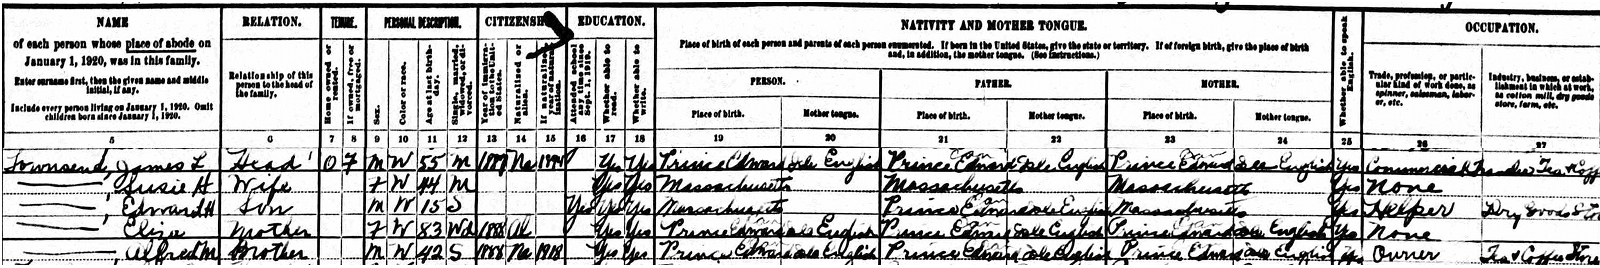 NAME RELATION. TENURE. PERSONAL DESCRIPTION. CITIZENSHIP. EDUCATION. NATIVITY AND MOTHER TONGUE. OCCUPATION.
of each person whose place of abode on January 1, 1920, was in this family.
Enter surname first, then the given name and middle initial, if any.
Include every person living on January 1, 1920. Omit children born since January 1, 1920.
Relationship of this person to the head of the family.
Home owned or rented.
If owned, free or mortgaged.
Sex.
Color or race.
Age at last birthday.
Single, married, widowed, or divorced.
Year of immigration to the United States.
Naturalized or alien.
If naturalized, year of naturalization.
Attended school any time since Sept. 1, 1919.
Whether able to read.
Whether able to write.
Place of birth of each person and parents of each person enumerated. If born in the United States, give the state or territory. If of foreign birth, give the place of birth and, in addition, the mother tongue. (See instructions.)
PERSON. FATHER. MOTHER.
Place of birth. Mother tongue. Place of birth. Mother tongue. Place of birth. Mother tongue.
Whether able to speak English.
Trade, profession, or particular kind of work done, as spinner, salesman, laborer, etc.
Industry, business, or establishment in which at work, as cotton mill, dry goods store, farm, etc.
5 6 7 8 9 10 11 12 13 14 15 16 17 18 19 20 21 22 23 24 25 26 27
Townsend, James L Head O F M W 55 M Na Yes Yes Prince Edward Isle English Prince Edward Isle English Prince Edward Isle English Yes Commercial
Susie H Wife F W 44 M Yes Yes Massachusetts Massachusetts Massachusetts Yes None
Edward H Son M W 15 S Yes Yes Yes Massachusetts Prince Edward Isle English Massachusetts Yes Helper Dry Goods
Eliza Mother F W 83 Wd 1888 Al Yes Yes Prince Edward Isle English Prince Edward Isle English Prince Edward Isle English Yes None
Alfred M Brother M W 42 S 1888 Na 1918 Yes Yes Prince Edward Isle English Prince Edward Isle English Prince Edward Isle English Yes Owner Tea & Coffee Store